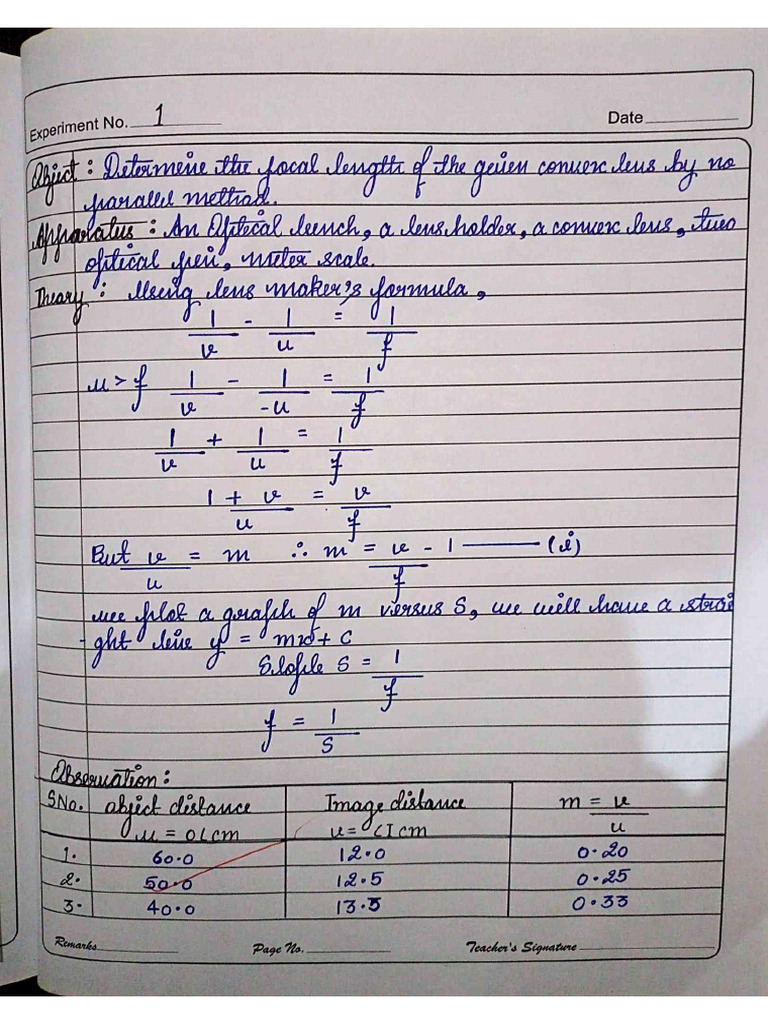 Experiment No. 1 Date
Object : Determine the focal length of the given convex lens by no
parallel method.
Apparatus : An Optical bench, a lens holder, a convex lens, two
optical pen, meter scale.
Theory : Using lens maker's formula,
1/v - 1/u = 1/f
u > f 1/v - 1/-u = 1/f
1/v + 1/u = 1/f
1 + v/u = v/f
But v/u = m ∴ m = v/f - 1 ——— (i)
we plot a graph of m versus S, we will have a strai
-ght line y = mx + c
Slope S = 1/f
f = 1/S
Observation :
SNo. object distance Image distance m = v/u
u = OLcm v = LIcm
1. 60.0 12.0 0.20
2. 50.0 12.5 0.25
3. 40.0 13.5 0.33
Remarks Page No. Teacher's Signature